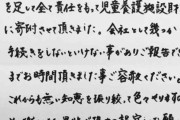 を足して全て責任をもって児童養護施設財
に寄付させて頂きました。会社として幾つか
手続きをしないといけない事がありご報告だ
までお時間頂きました事ご容赦ください。
これからも無い知恵を振り絞って色々やりますの